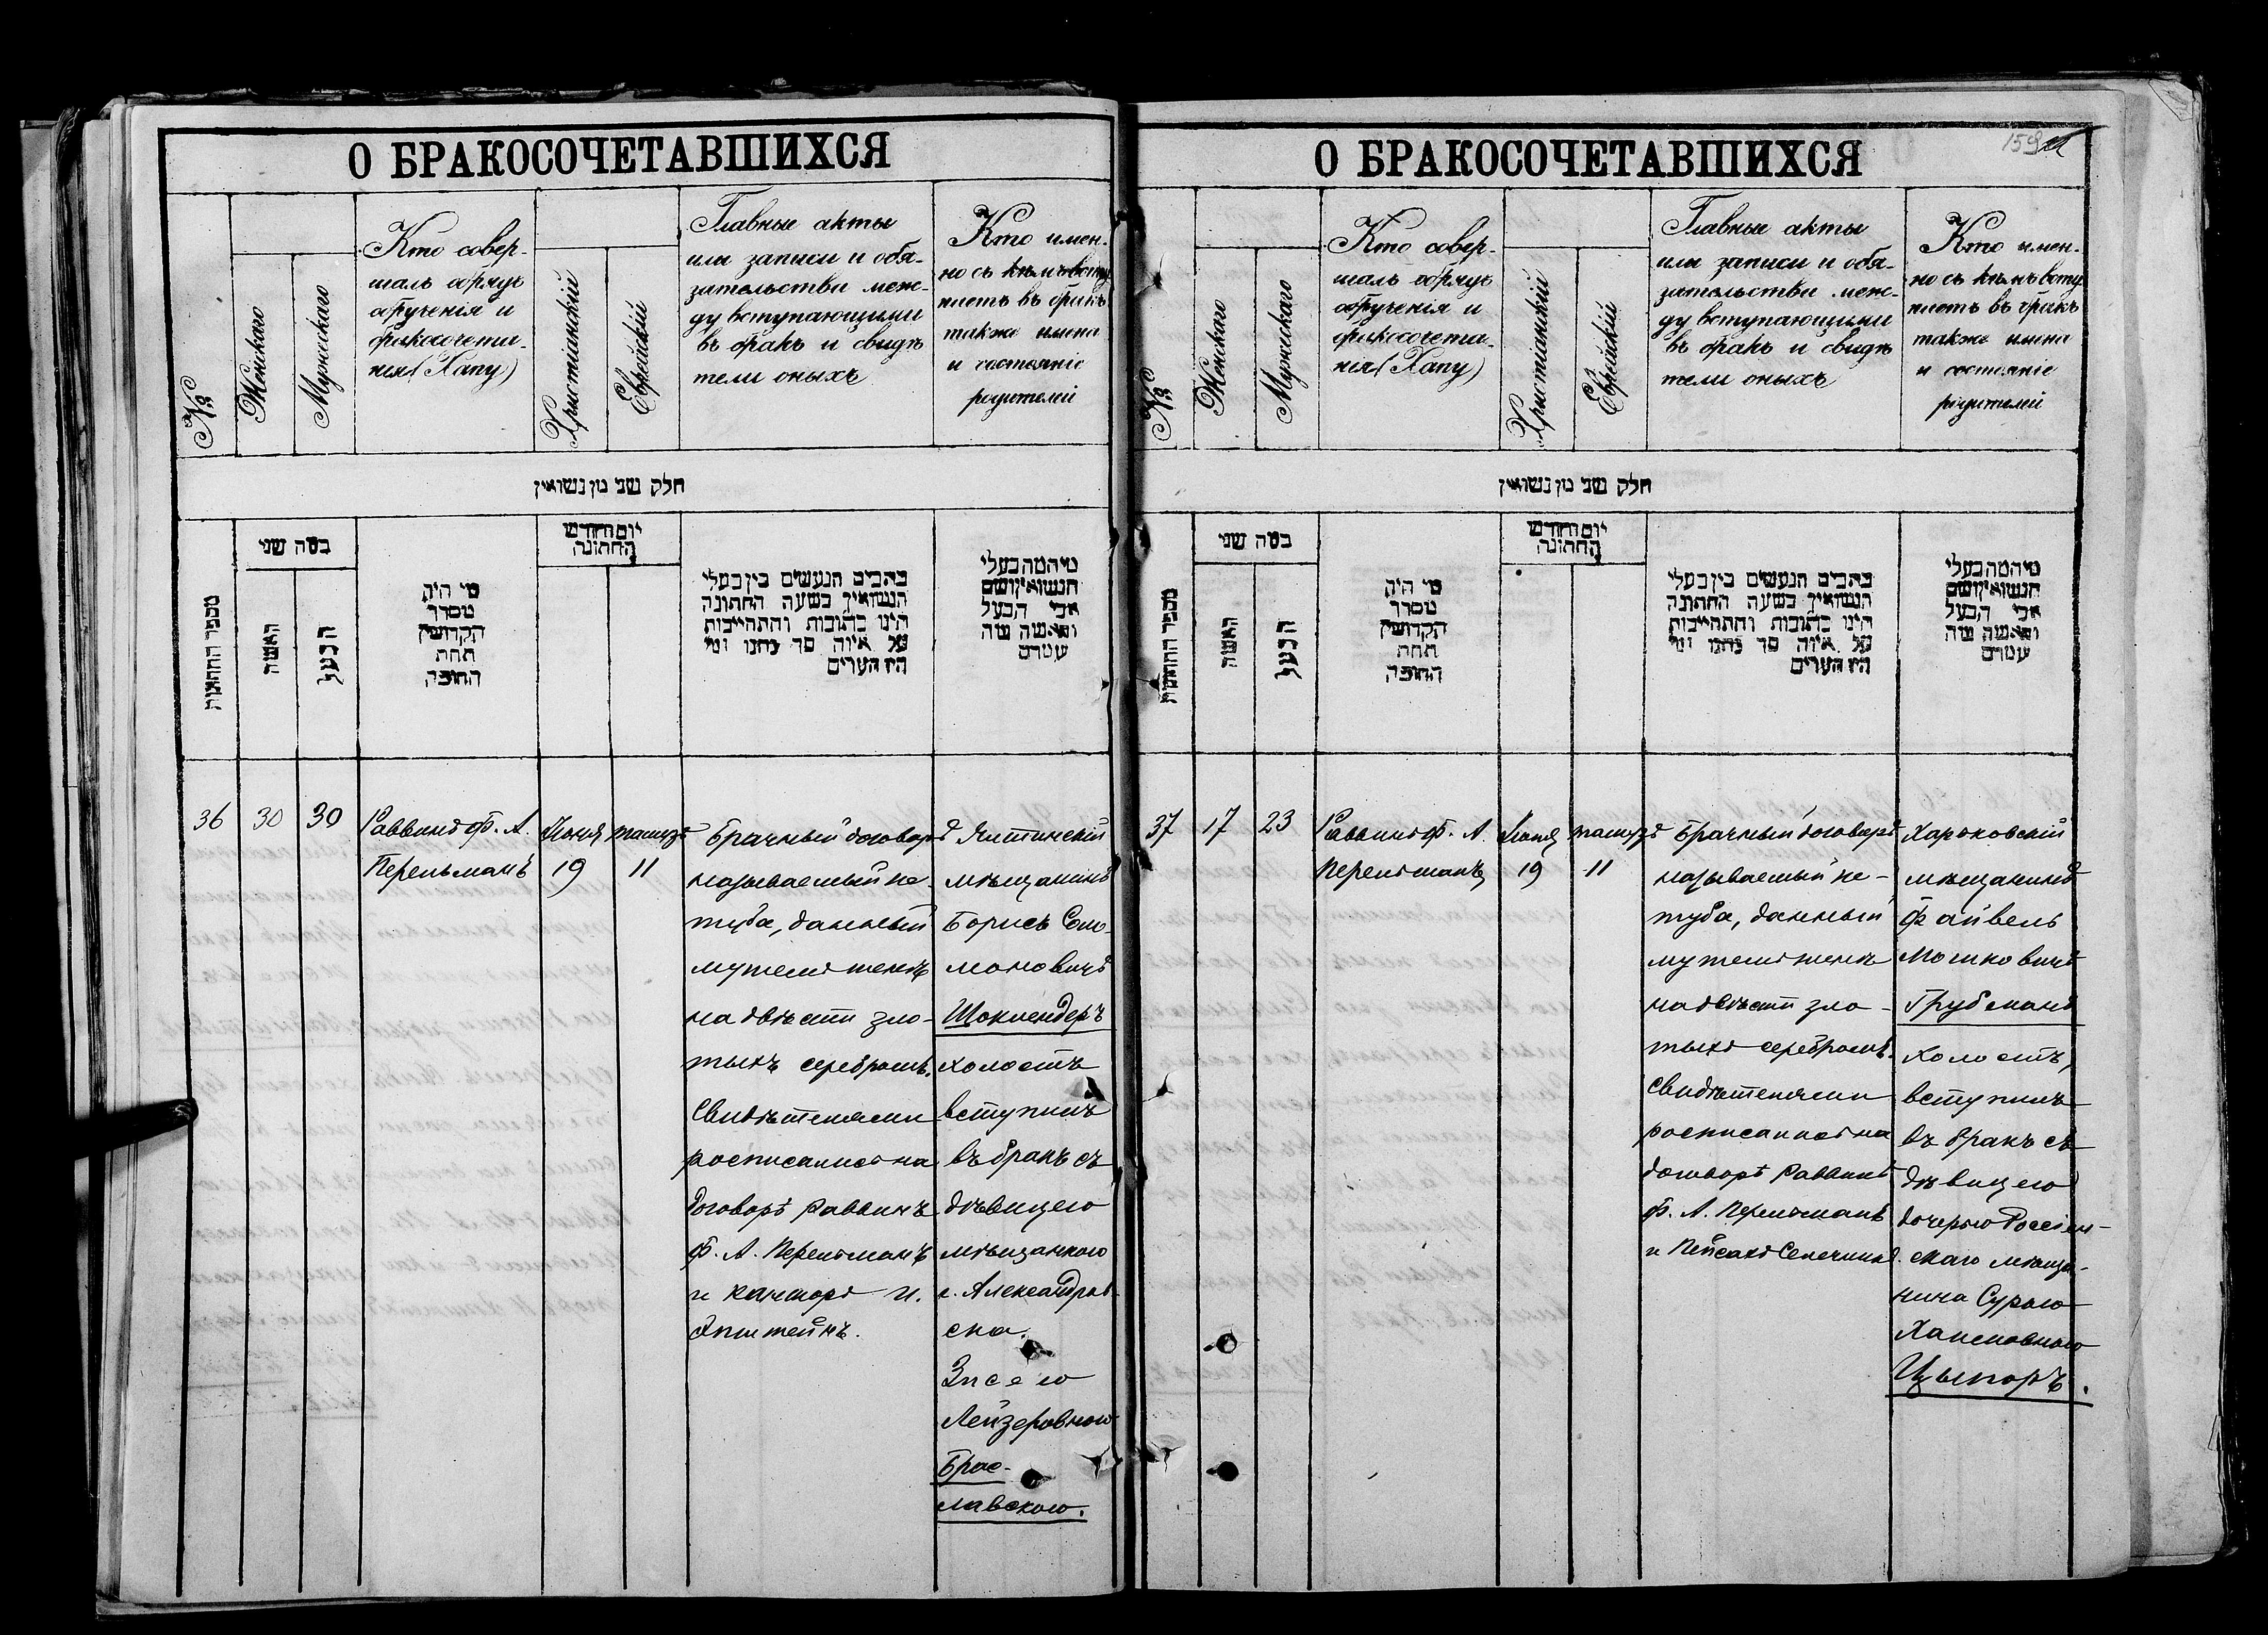 О БРАКОСОЧЕТАВШИХСЯ
№
Женскаго
Мужескаго
Кто совер-
шалъ обрядъ
обрученія и
бракосочета-
нія (Хапу)
Христіанскій
Еврейскій
Главные акты
или записи и обя-
зательства меж-
ду вступающими
въ бракъ и свидѣ
тели оныхъ
Кто имен-
но съ кѣмъ всту
паетъ въ бракъ
также имена
и состояніе
родителей
חלק שני מן נשואין
מספר החתונות
במה שני
האשה
הבעל
מי היה
מסדר
הקדושין
תחת
החופה
יום וחודש
החתונה
כתבים הנעשים בין בעלי
הנשואין בשעה החתונה
היינו כתובות והתחייבות
על איזה סך נתנו ומי
היו העדים
מי המה בעלי
הנשואין ושם
אבי הבעל
והאשה ומה
עמדם
36
30
30
Раввинъ Ф. А.
Перельманъ
Іюня
19
тамузъ
11
Брачный договоръ
называемый ке-
туба, данный
мужемъ женѣ
на двѣсти зло-
тыхъ серебромъ.
Свидѣтелями
росписались на
договорѣ раввинъ
Ф. А. Перельманъ
и канторъ И.
Эпштейнъ.
Ялтинскій
мѣщанинъ
Борисъ Соло-
моновичъ
Шоклендеръ
холостъ
вступилъ
въ бракъ съ
дѣвицею
мѣщанкою
г. Александров-
ска.
Зисею
Лейзеровною
Брас-
лавскою.
О БРАКОСОЧЕТАВШИХСЯ
159
№
Женскаго
Мужескаго
Кто совер-
шалъ обрядъ
обрученія и
бракосочета-
нія (Хапу)
Христіанскій
Еврейскій
Главные акты
или записи и обя-
зательства меж-
ду вступающими
въ бракъ и свидѣ
тели оныхъ
Кто имен-
но съ кѣмъ всту
паетъ въ бракъ
также имена
и состояніе
родителей
חלק שני מן נשואין
מספר החתונות
במה שני
האשה
הבעל
מי היה
מסדר
הקדושין
תחת
החופה
יום וחודש
החתונה
כתבים הנעשים בין בעלי
הנשואין בשעה החתונה
היינו כתובות והתחייבות
על איזה סך נתנו ומי
היו העדים
מי המה בעלי
הנשואין ושם
אבי הבעל
והאשה ומה
עמדם
37
17
23
Раввинъ Ф. А.
Перельманъ
Іюня
19
тамузъ
11
Брачный договоръ
называемый ке-
туба, данный
мужемъ женѣ
на двѣсти зло-
тыхъ серебромъ.
Свидѣтелями
росписались на
договорѣ раввинъ
Ф. А. Перельманъ
и Пейсахъ Сепечкинъ.
Харьковскій
мѣщанинъ
Файвель
Мошковичъ
Трубманъ
холостъ,
вступилъ
въ бракъ съ
дѣвицею
дочерью Россіен-
скаго мѣща-
нина Сурою
Хаимовною
Цыпоръ.